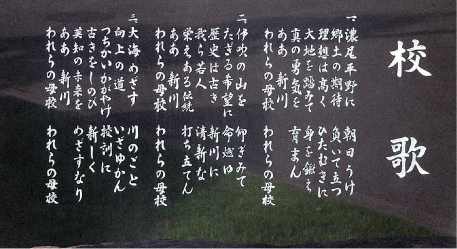 校歌
一、濃尾平野に 朝日うけ
郷土の期待 負いて立つ
理想は高く ひたむきに
大地を踏みて 身を鍛え
真の勇気を 育まん
ああ 新川
われらの母校 われらの母校
二、伊吹の山を 仰ぎみて
たぎる希望に 命燃ゆ
歴史は古き 新川に
我ら若人 清新な
栄えある伝統 打ち立てん
ああ 新川
われらの母校 われらの母校
三、大海めざす 川のごと
向上の道 いざゆかん
つちかいかがやけ 校訓に
古きをしのび 新しく
英知の未来を めざすなり
ああ 新川
われらの母校 われらの母校